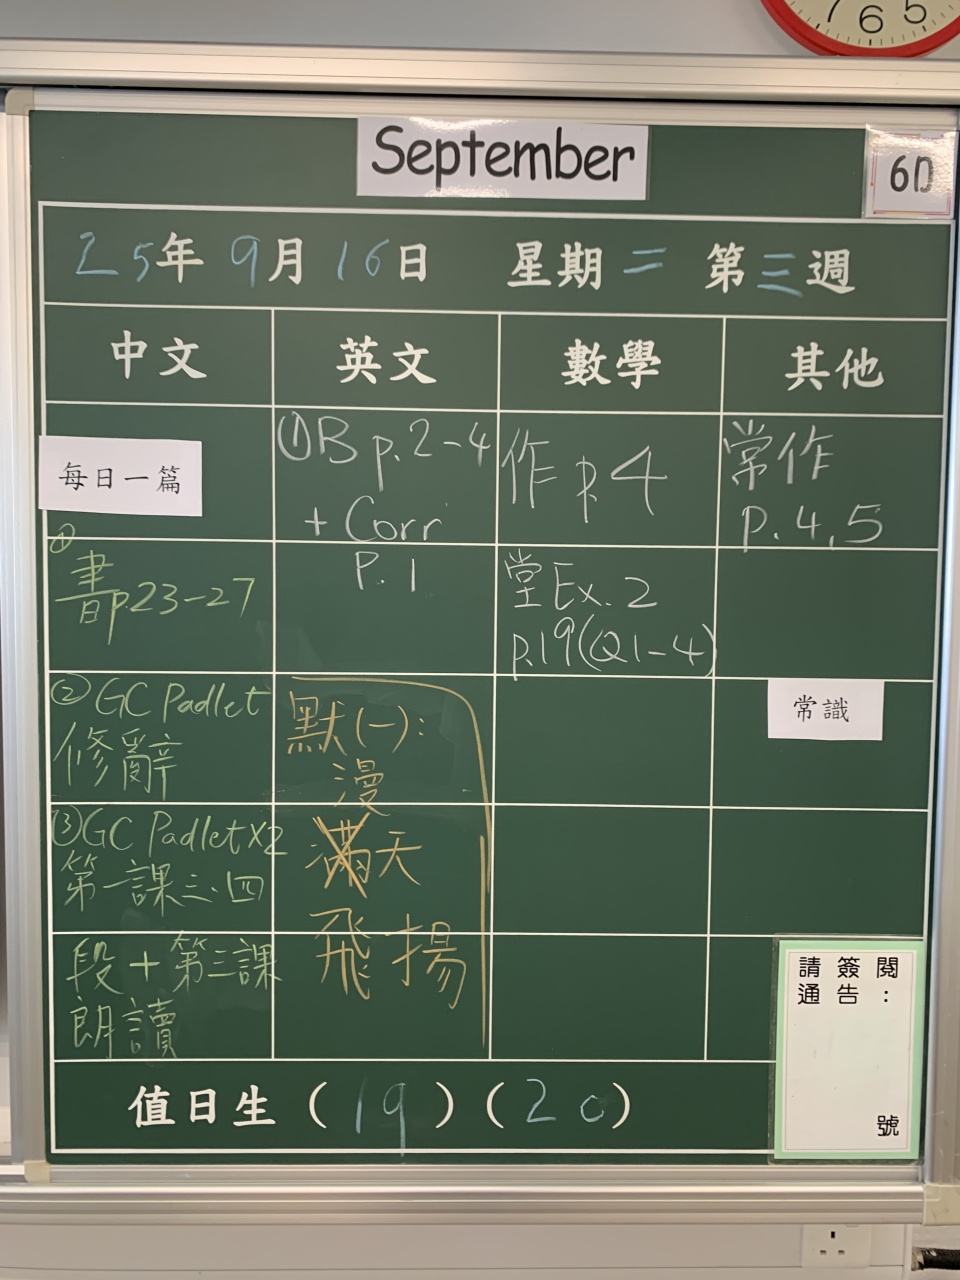 7 6 5
September
6D
25年9月16日 星期二 第三週
中文 英文 數學 其他
每日一篇
①書p.23-27
②GC Padlet
修辭
③GC Padlet x2
第一課三、四
段+第三課
朗讀
①B p.2-4
+ Corr
P.1
默(一):
漫
滿天
飛揚
作 p4
堂Ex.2
p.19(Q1-4)
常作
P.4,5
常識
請簽閱
通告:
號
值日生(19)(20)